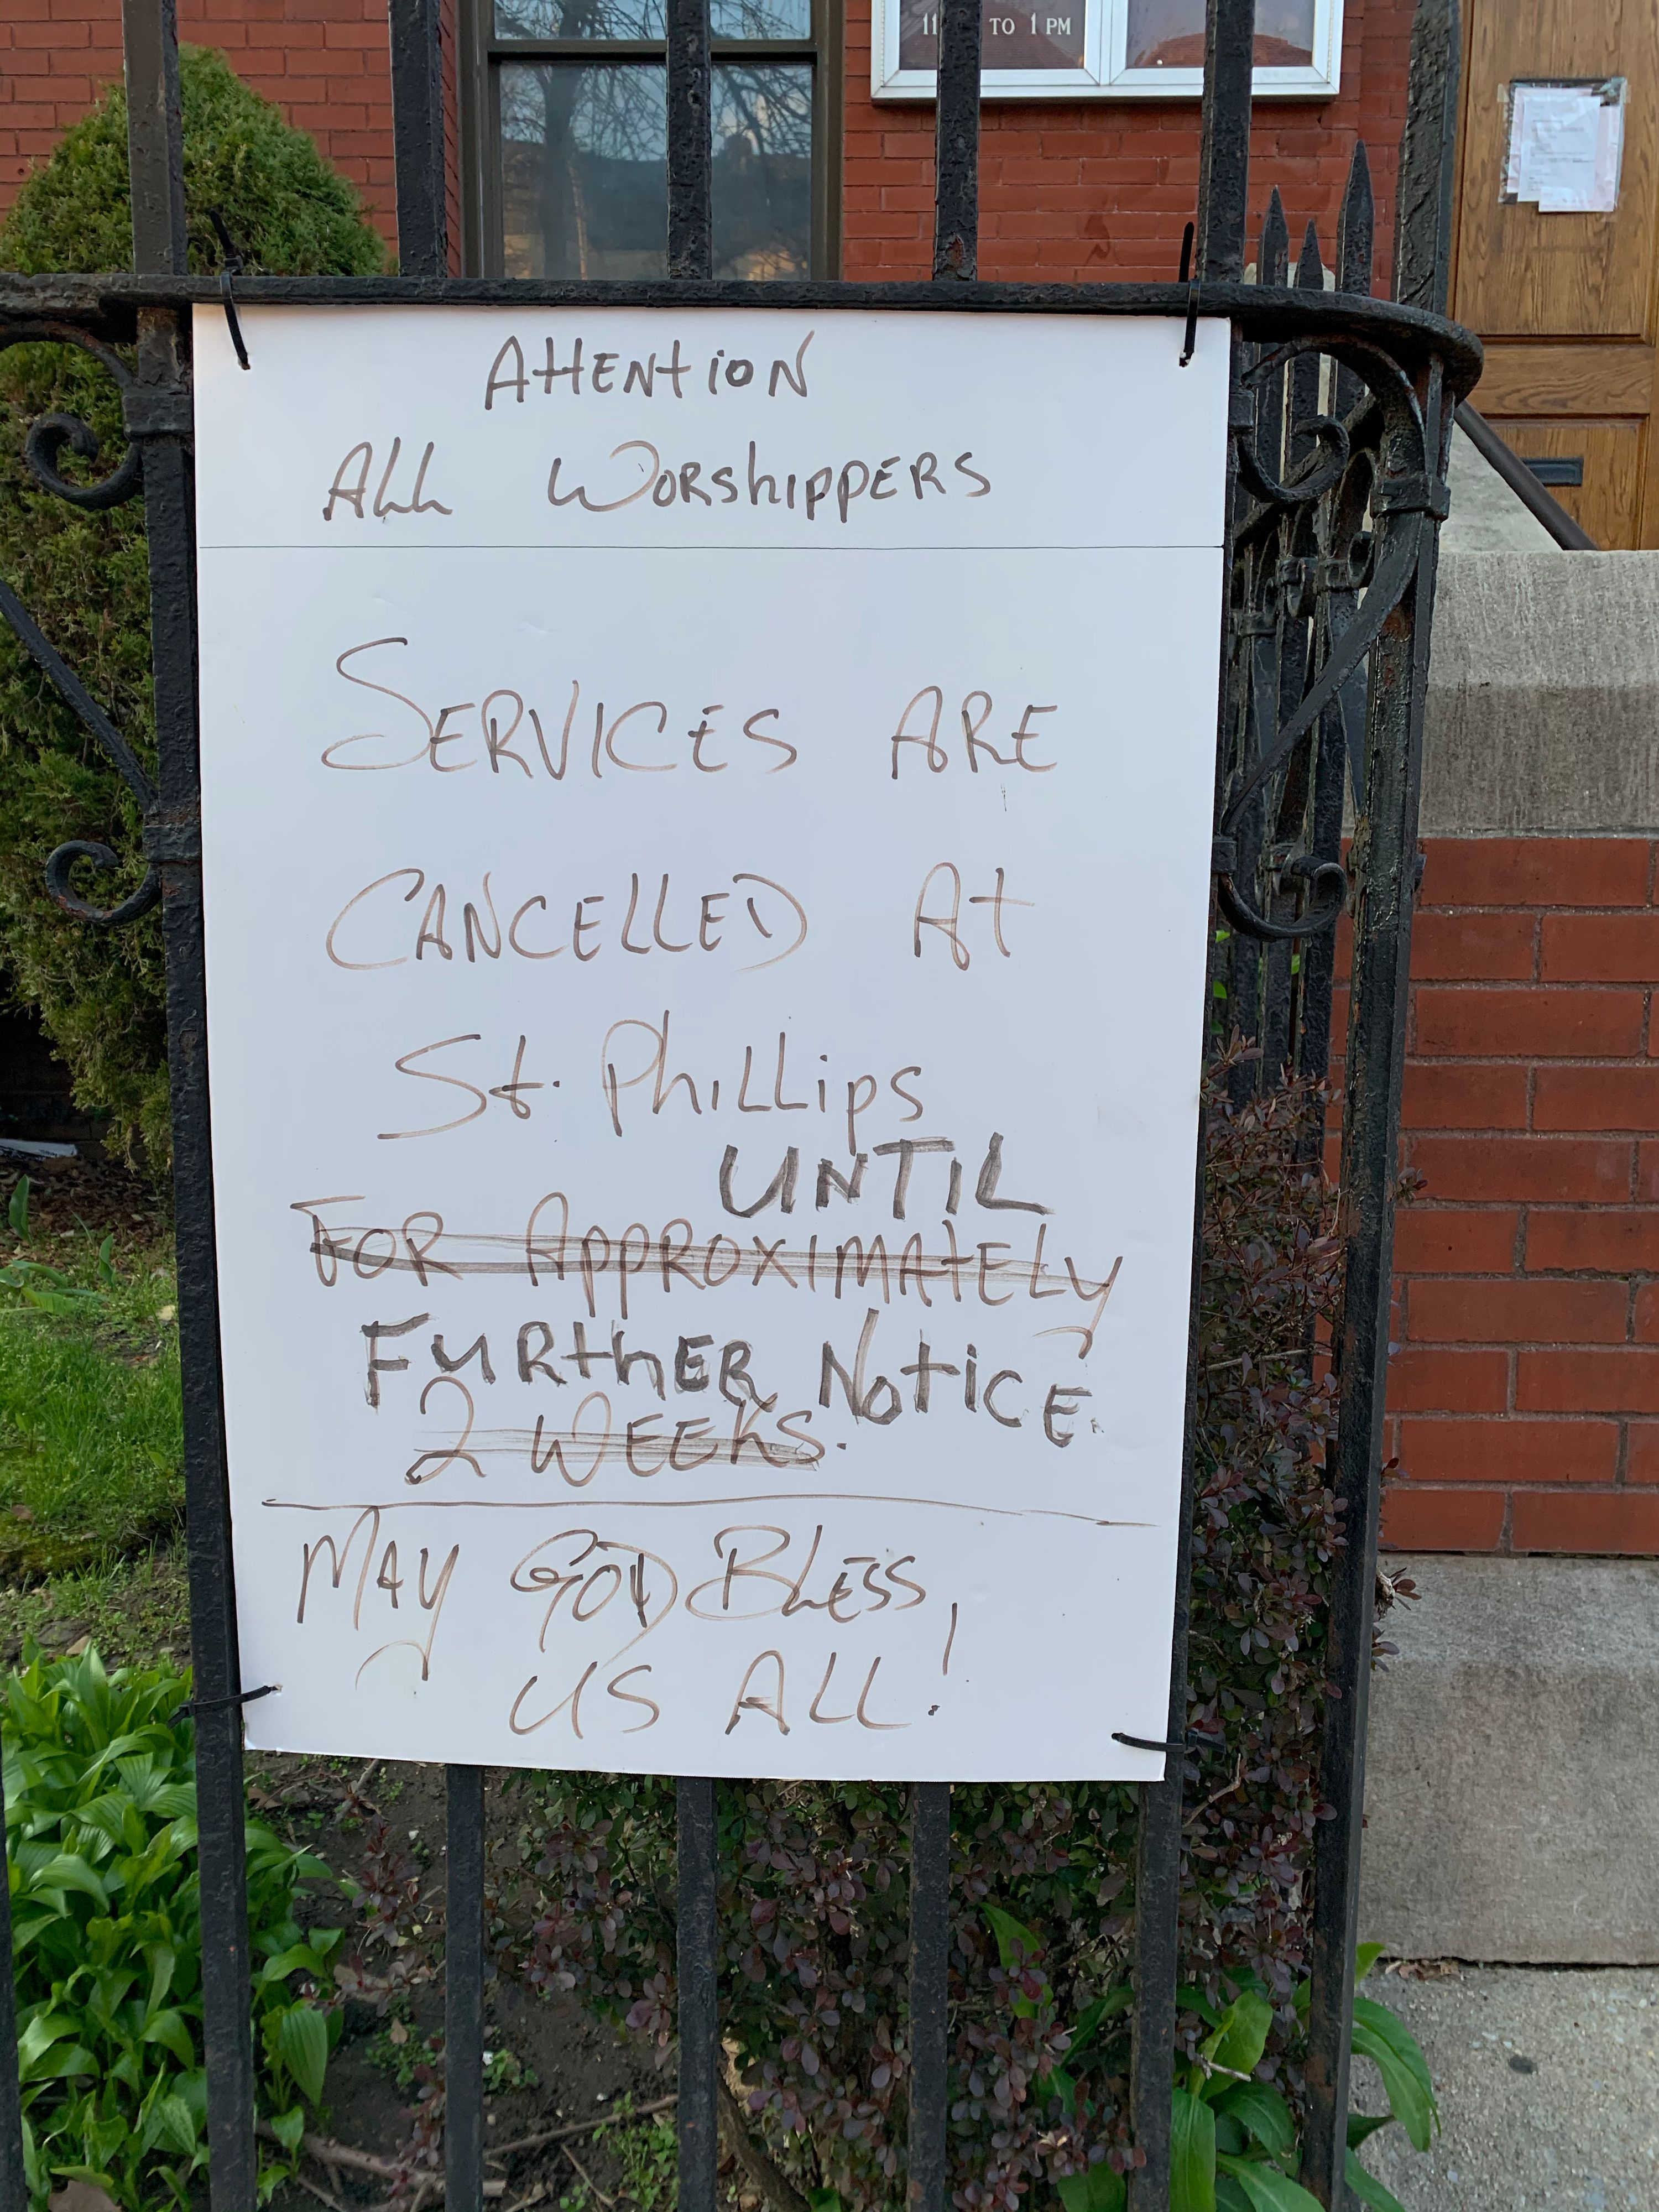 11 TO 1 PM
Attention
All Worshippers
Services are
Cancelled at
St. Phillips
UNTIL
For Approximately
Further Notice.
2 Weeks.
May God Bless
us All!